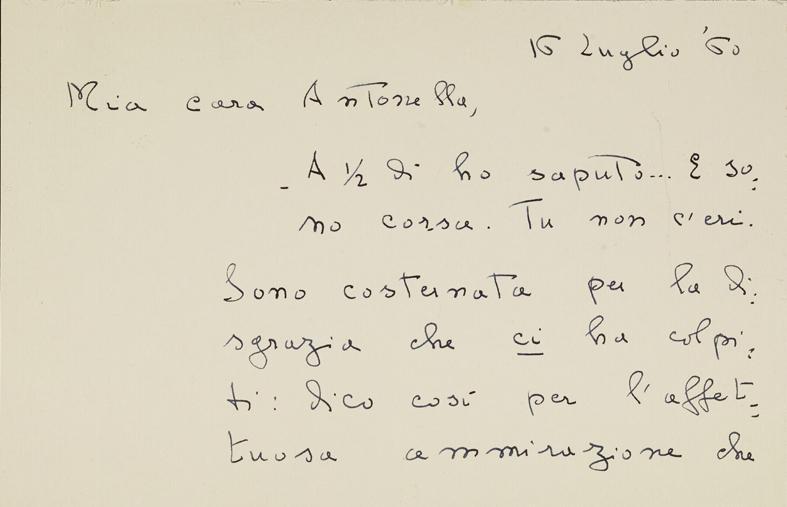 16 Luglio '60
Mia cara Antonella,
- A ½ dì ho saputo... E so:
no corsa. Tu non c'eri.
Sono costernata per la di:
sgrazia che ci ha colpi:
ti: dico così per l'affet:
tuosa ammirazione che